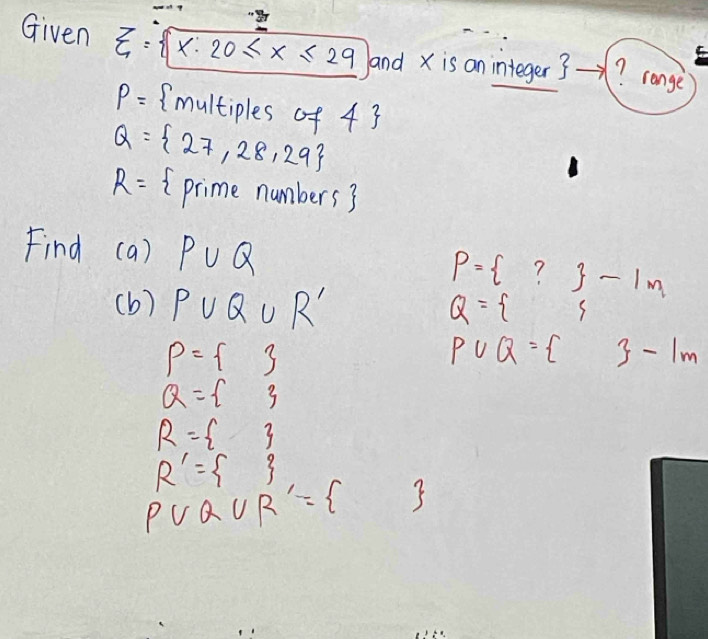 Given ξ = {x: 20 ≤ x ≤ 29 and x is an integer} → ? range
P = {multiples of 4}
Q = {27, 28, 29}
R = {prime numbers}
Find (a) P ∪ Q
(b) P ∪ Q ∪ R'
P = { }
Q = { }
R = { }
R' = { }
P ∪ Q ∪ R' = { }
P = { ? } - 1m
Q = { }
P ∪ Q = { } - 1m